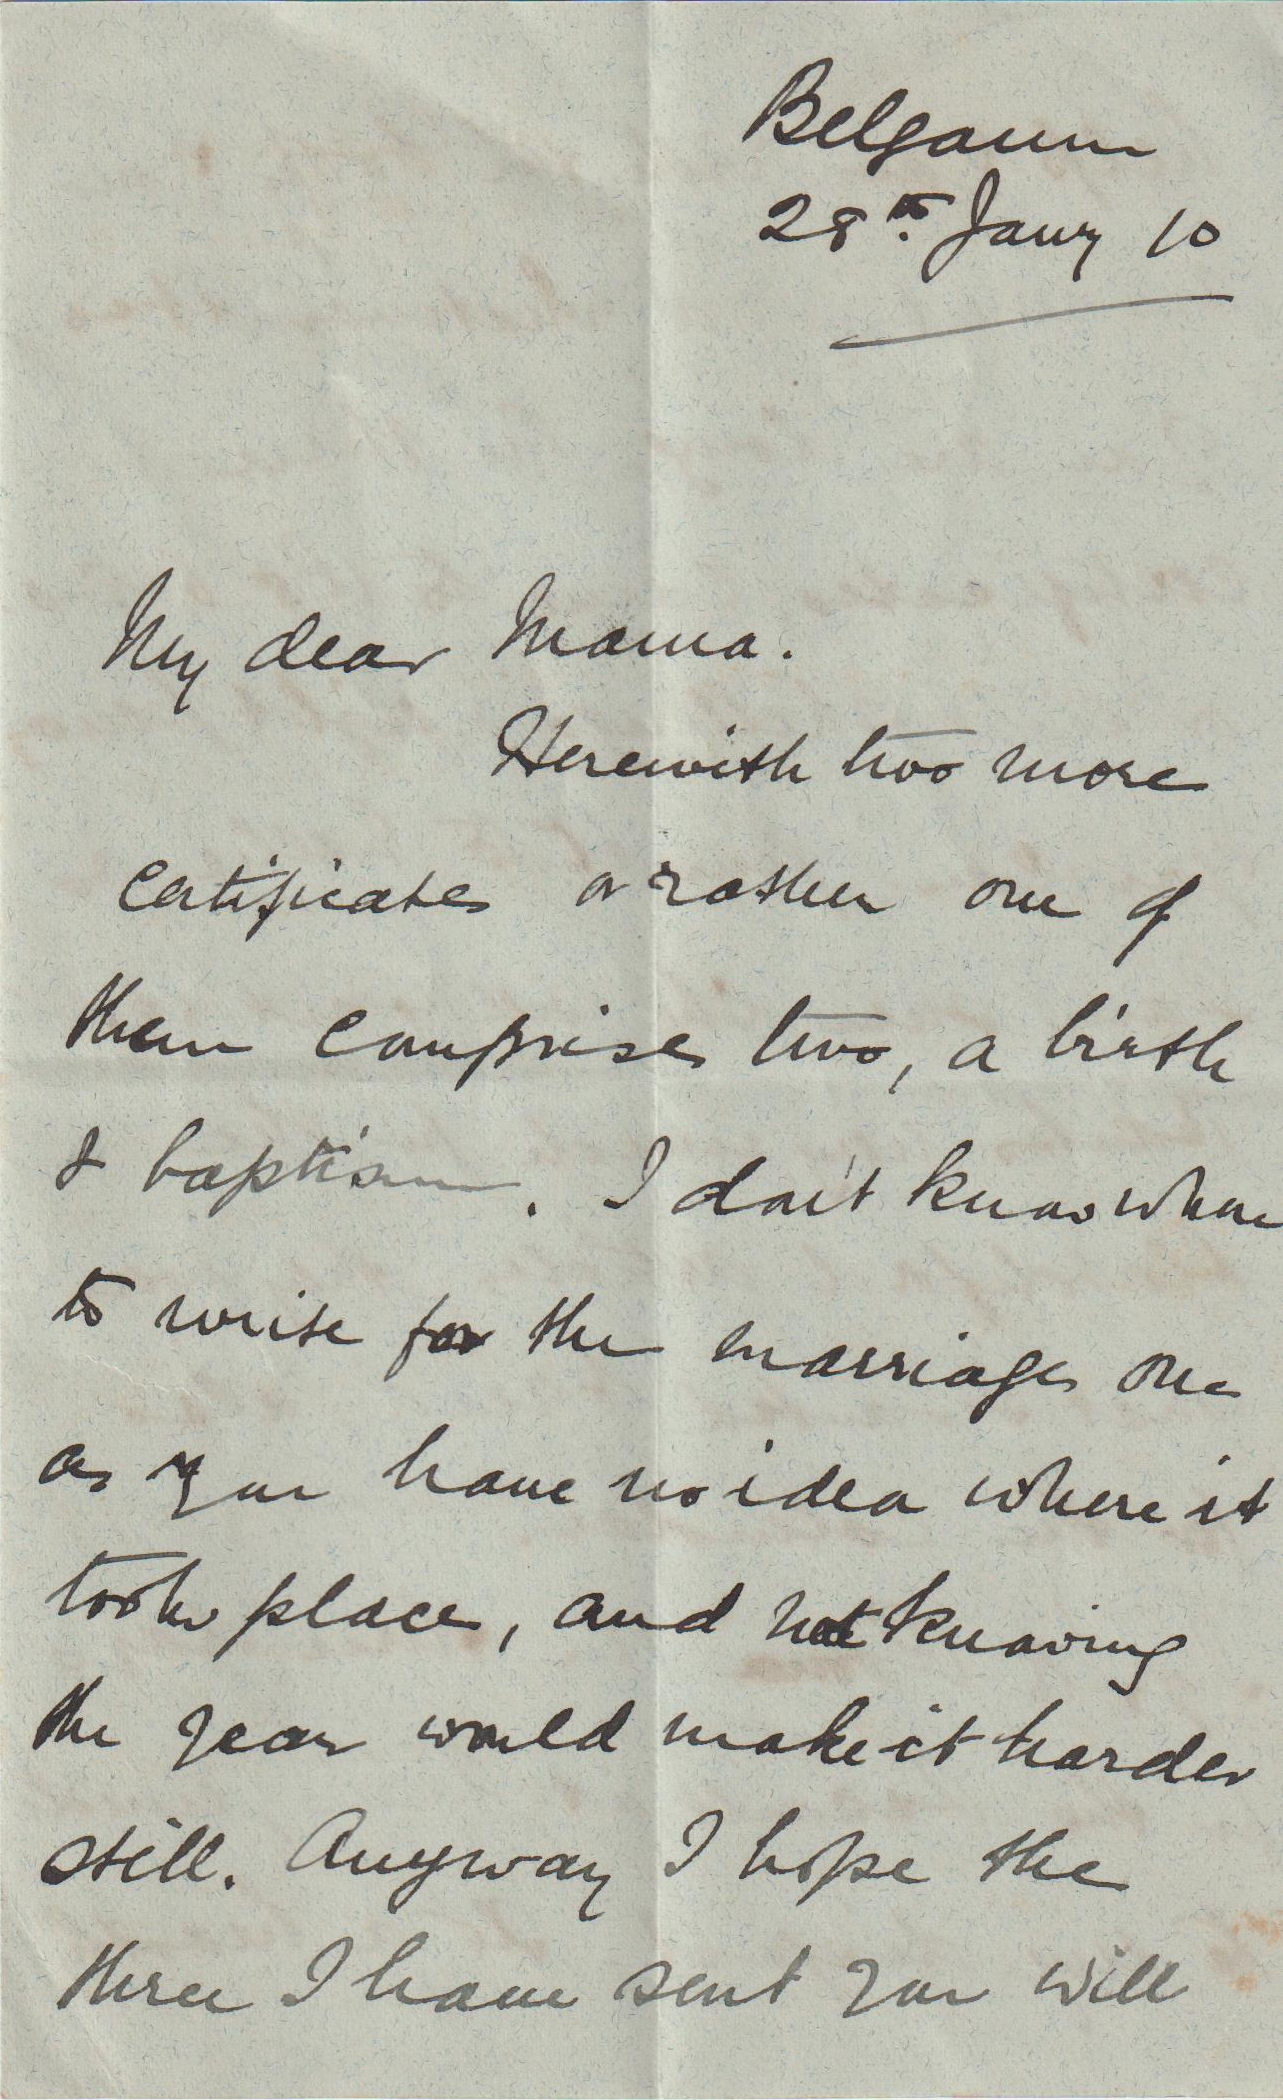 Belgaum
28th. Jany 10
My dear Mama.
Herewith two more
certificates or rather one of
them comprises two, a birth
& baptism. I don't know where
to write for the marriage one
as you have no idea where it
took place, and not knowing
the year would make it harder
still. Anyway I hope the
three I have sent you will